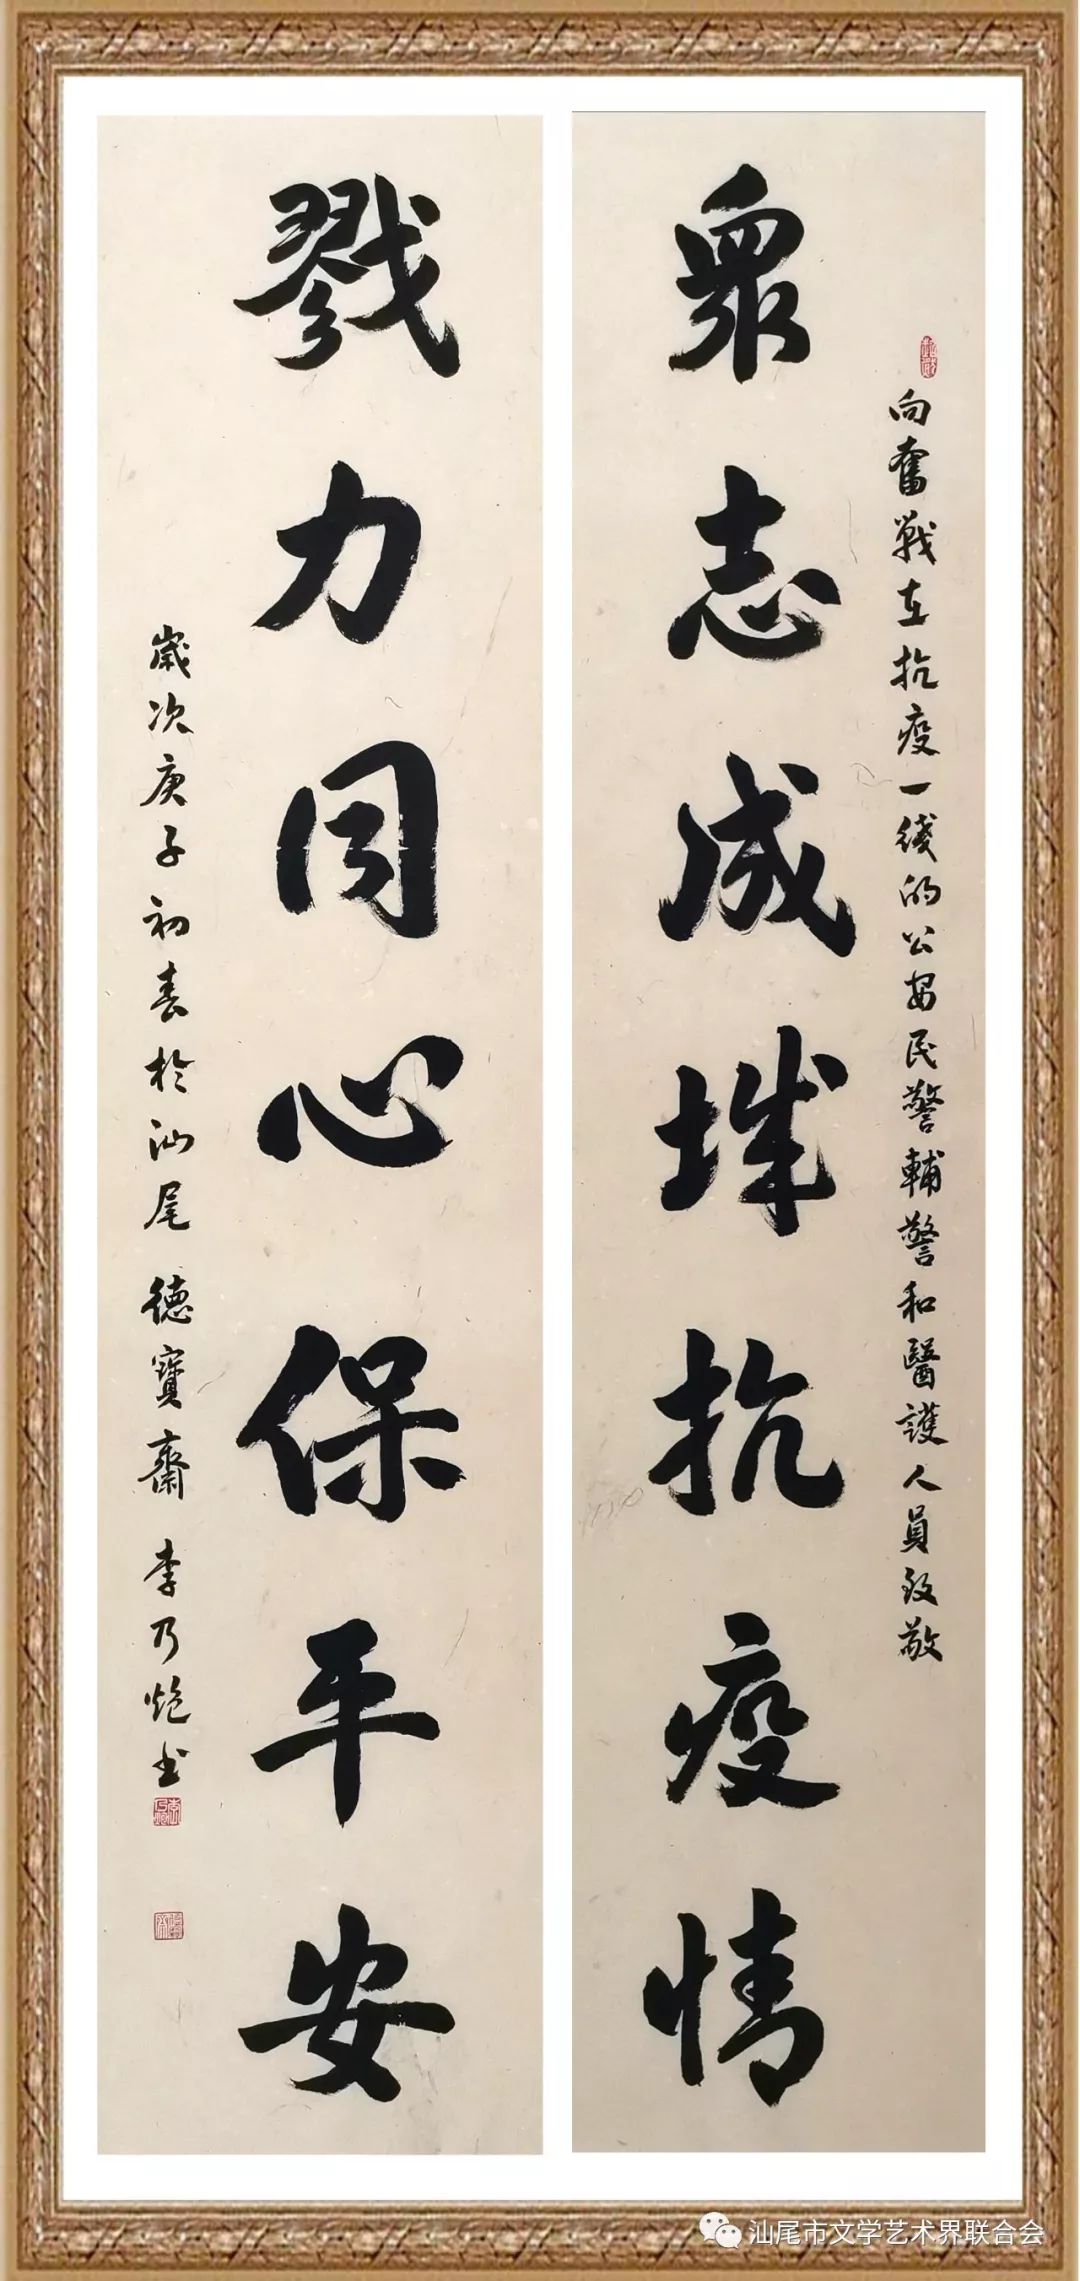 向奮戰在抗疫一綫的公安民警輔警和醫護人員致敬
眾志成城抗疫情
戮力同心保平安
歲次庚子初春於汕尾 德寶齋 李乃炮书
汕尾市文学艺术界联合会